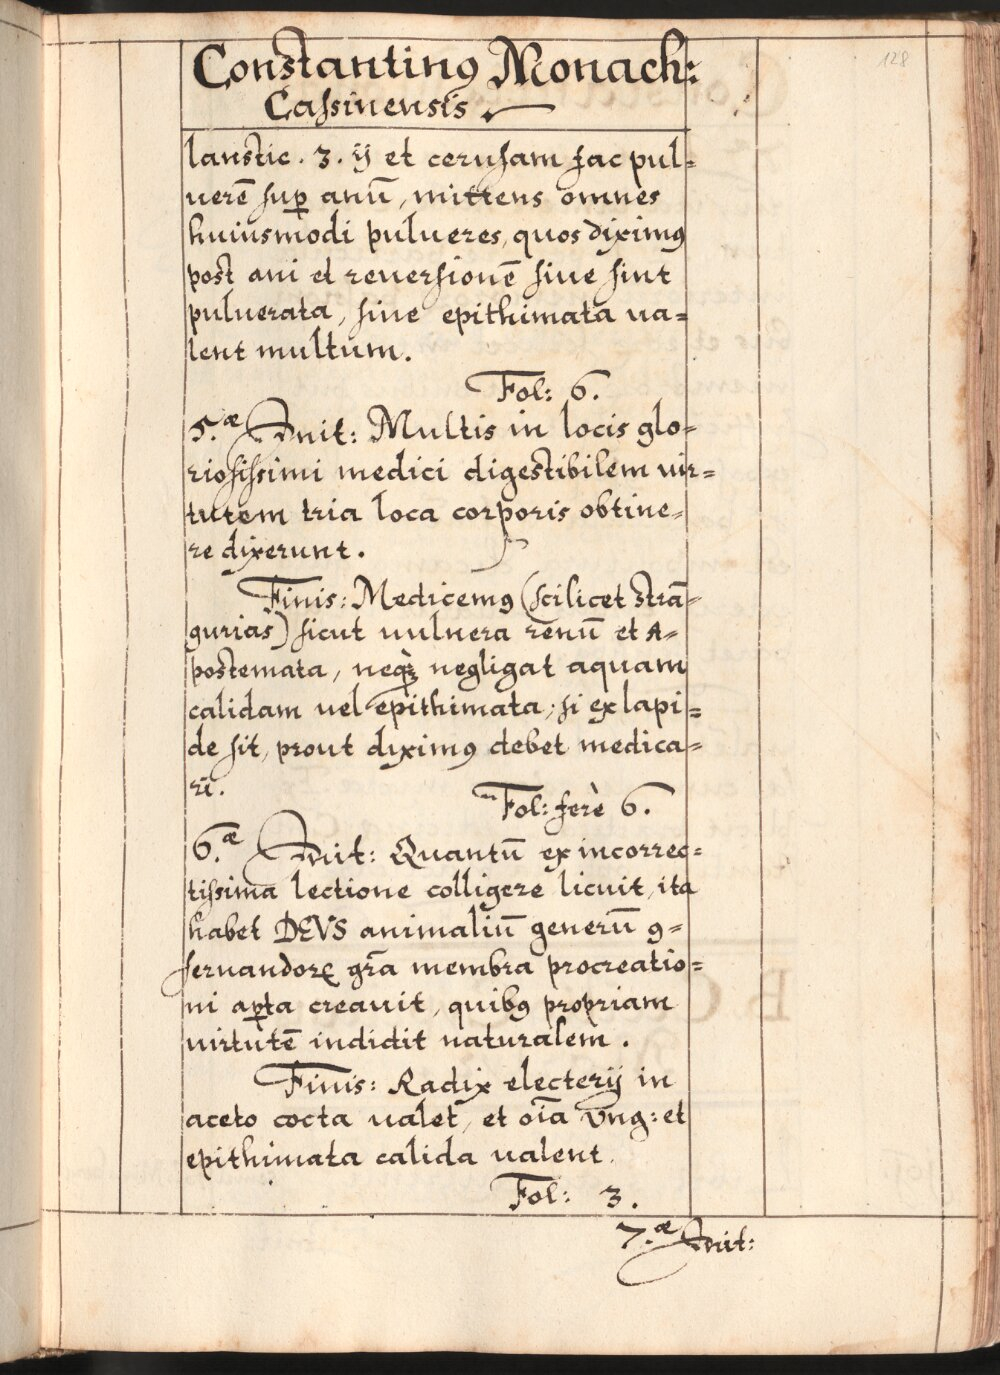 128
Constantinꝰ Monach:
Caſsinensis
lanstic. 3. ij et ceruſam fac pul=
uerē ſuꝑ anū, mittens omnes
huiusmodi pulueres, quos diximꝰ
post ani et reuerſionē ſiue ſint
puluerata, ſiue epithimata ua=
lent multum.
Fol: 6.
5.æ Init: Multis in locis glo=
rioſiſsimi medici digestibilem uir=
tutem tria loca corporis obtine=
re dixerunt.
Finis: Medicemꝰ (ſcilicet strā=
gurias) ſicut uulnera renū et A=
postemata, neqꝫ negligat aquam
calidam uel epithimata; ſi ex lapi=
de ſit, prout diximꝰ debet medica=
ri.
Fol: ferè 6.
6.æ Init: Quantū ex incorrec=
tiſsima lectione colligere licuit, ita
habet DEVS animaliū generū ꝯ=
ſeruandoꝝ grā membra procreatio=
ni apta creauit, quibꝰ propriam
uirtutē indidit naturalem.
Finis: Radix electerij in
aceto cocta ualet, et oīa vng: et
epithimata calida ualent.
Fol: 3.
7.æ Init: